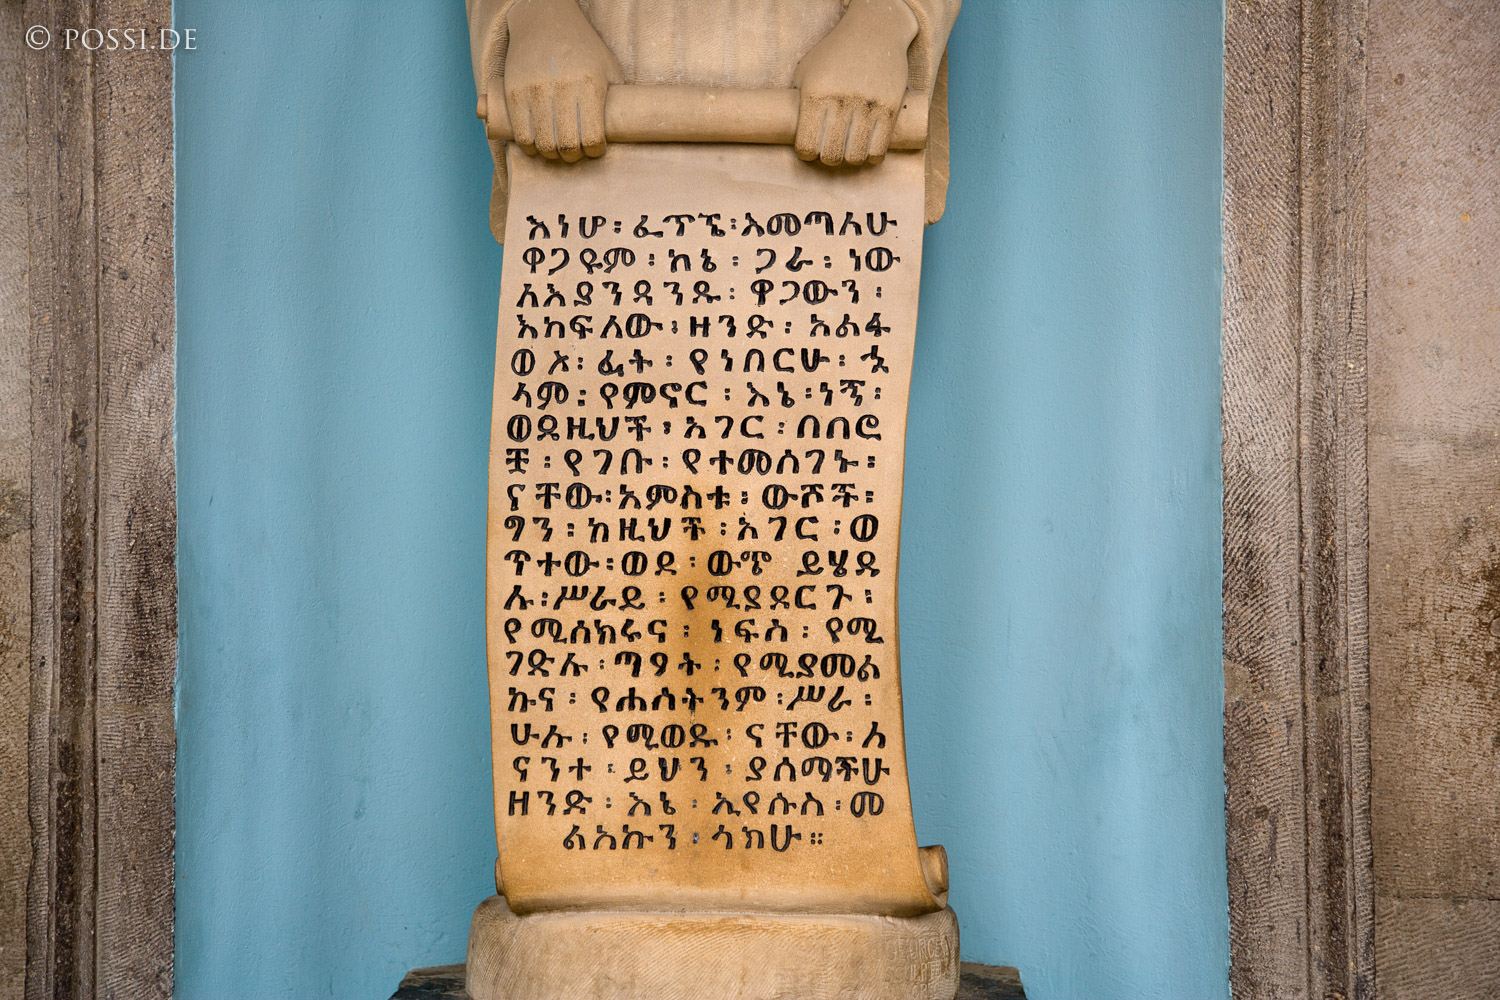 © POSSI.DE
እነሆ፡ፈጥኜ፡እመጣለሁ
ዋጋዬም፡ከኔ፡ጋራ፡ነው
ለእያንዳንዱ፡ዋጋውን፡
እከፍለው፡ዘንድ፡አልፋ
ወኦ፡ፊት፡የነበርሁ፡ኋ
ላም፡የምኖር፡እኔ፡ነኝ፡
ወደዚህች፡አገር፡በበሮ
ቿ፡የገቡ፡የተመሰገኑ፡
ናቸው፡አምስቱ፡ውሾች፡
ግን፡ከዚህች፡አገር፡ወ
ጥተው፡ወደ፡ውጭ ይሄዳ
ሉ፡ሥራይ፡የሚያደርጉ፡
የሚሰክሩና፡ነፍስ፡የሚ
ገድሉ፡ጣዖት፡የሚያመል
ኩና፡የሐሰትንም፡ሥራ፡
ሁሉ፡የሚወዱ፡ናቸው፡ለ
ናንተ፡ይህን፡ያሰማችሁ
ዘንድ፡እኔ፡ኢየሱስ፡መ
ልአኩን፡ላክሁ።